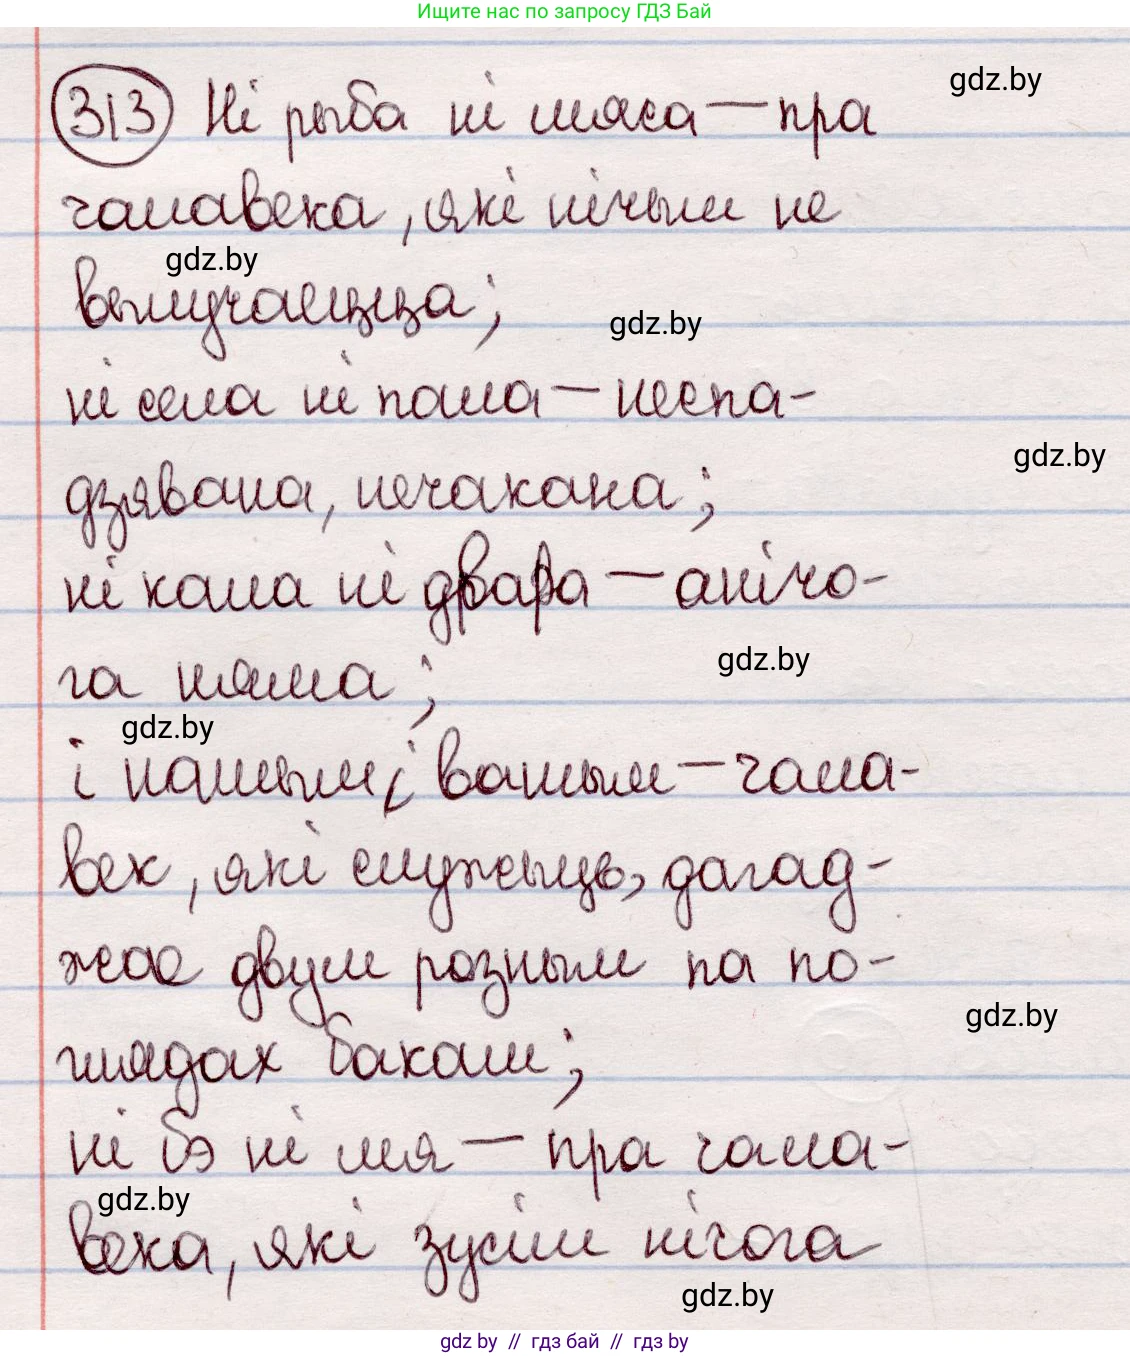 Ищите нас по запросу ГДЗ Бай
gdz.by
313 Ні рыба ні мяса — пра
чалавека, які нічым не
gdz.by
вылучаецца;
gdz.by
ні села ні пала — неспа-
gdz.by
дзявана, нечакана;
ні кала ні двара — анічо-
га няма;
gdz.by
gdz.by
і нашым і вашым — чала-
век, які служыць, дагад-
жае двум розным па по-
gdz.by
глядах бакам;
ні бэ ні мя — пра чала-
gdz.by
века, які зусім нічога
gdz.by
gdz by // гдз бай // гдз by